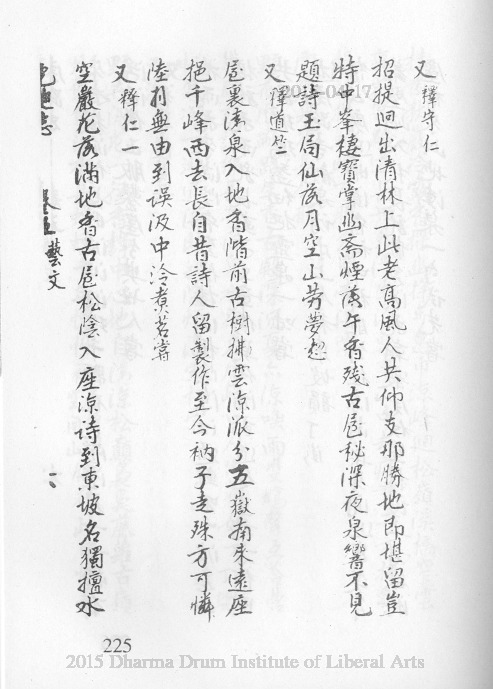 又 釋守仁
招提迥出清林上此老高風人共仰支那勝地即堪留豈
特中峯棲寶掌幽斎煙蕂午香残古屋秘深夜泉響不見
題詩玉局仙落月空山勞夢想
又 釋道竺
屋裏清泉入地香階前古樹排雲涼派分五嶽南來遠座
挹千峰西去長自昔詩人留製作至今衲子走殊方可憐
陸羽無由到誤汲中泠煮茗嘗
又 釋仁一
空嚴花落滿地香古屋松陰入座涼詩到東坡名獨擅水
藝文
225
2015 Dharma Drum Institute of Liberal Arts